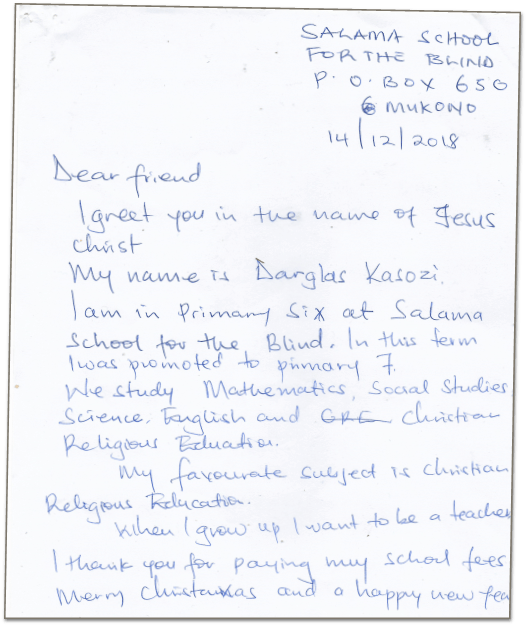 SALAMA SCHOOL
FOR THE BLIND
P. O. BOX 650
MUKONO
14/12/2018
Dear friend
I greet you in the name of Jesus
christ
My name is Darglas Kasozi.
I am in Primary Six at Salama
School for the Blind. In this term
I was promoted to primary 7.
We study Mathematics, Social Studies
Science, English and CRE Christian
Religious Eduation.
My favourate subject is Christian
Religious Education.
When I grow up I want to be a teacher
I thank you for paying my school fees
Merry Christmas and a happy new Yea